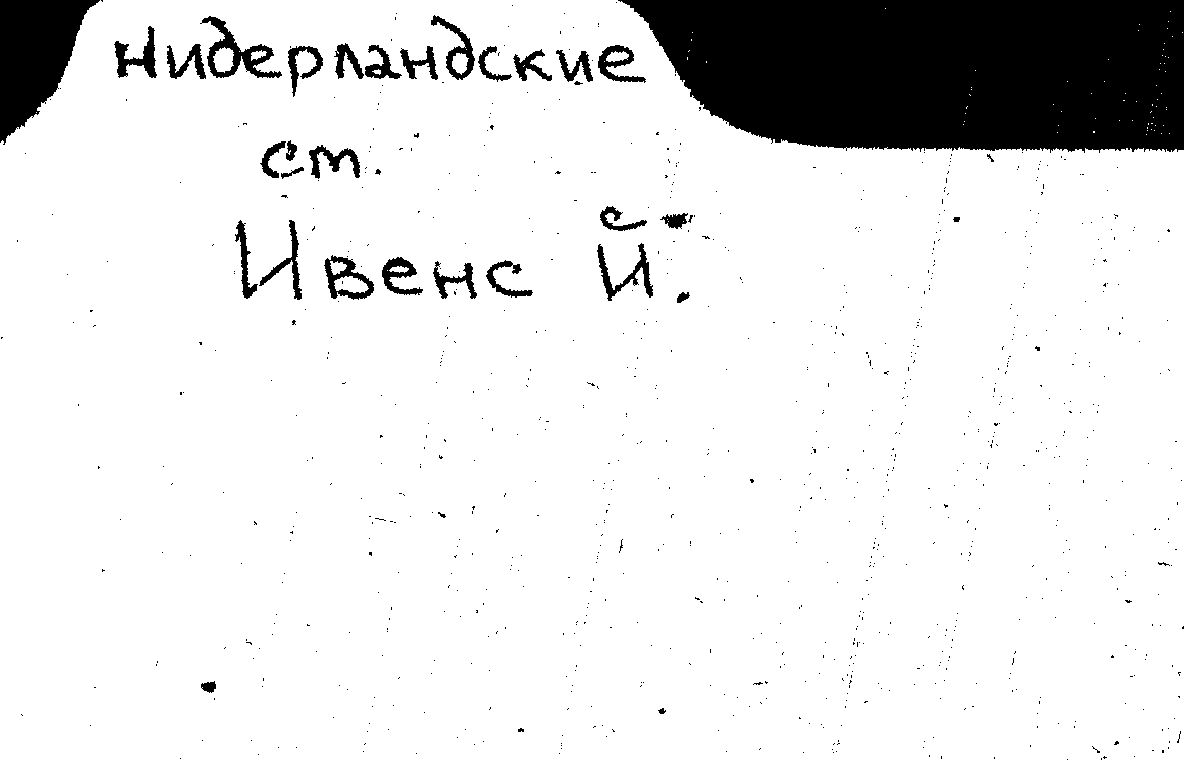 Нидерландские
ст.
Ивенс Й.